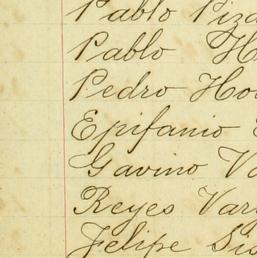 Pablo Piza
Pablo H
Pedro Ho
Epifanio
Gavino Va
Reyes Varg
Felipe Sis